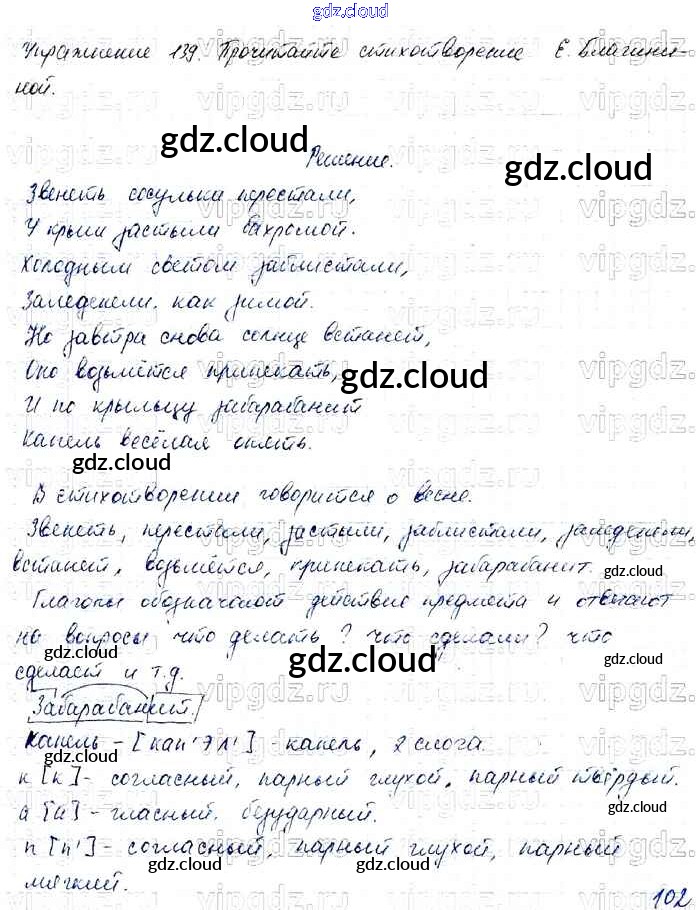 gdz.cloud
Упражнение 139. Прочитайте стихотворение Е. Благини-
ной.
gdz.cloud
Решение.
gdz.cloud
Звенеть сосульки перестали,
У крыш застыли бахромой.
Холодным светом заблистали,
Заледенели, как зимой.
Но завтра снова солнце встанет,
Оно возьмётся припекать,
gdz.cloud
И по крыльцу забарабанит
Капель весёлая опять.
gdz.cloud
В стихотворении говорится о весне.
Звенеть, перестали, застыли, заблистали, заледенели,
встанет, возьмётся, припекать, забарабанит.
gdz.cloud
Глаголы обозначают действие предмета и отвечают
на вопросы что делать? что сделали? что
gdz.cloud
gdz.cloud
сделает и т.д.
Забарабанит.
Капель – [кап'эл'] - капель, 2 слога.
к [к] - согласный, парный глухой, парный твёрдый.
gdz.cloud
а [а] - гласный, безударный.
gdz.cloud
п [п'] - согласный, парный глухой, парный
gdz.cloud
мягкий.
102